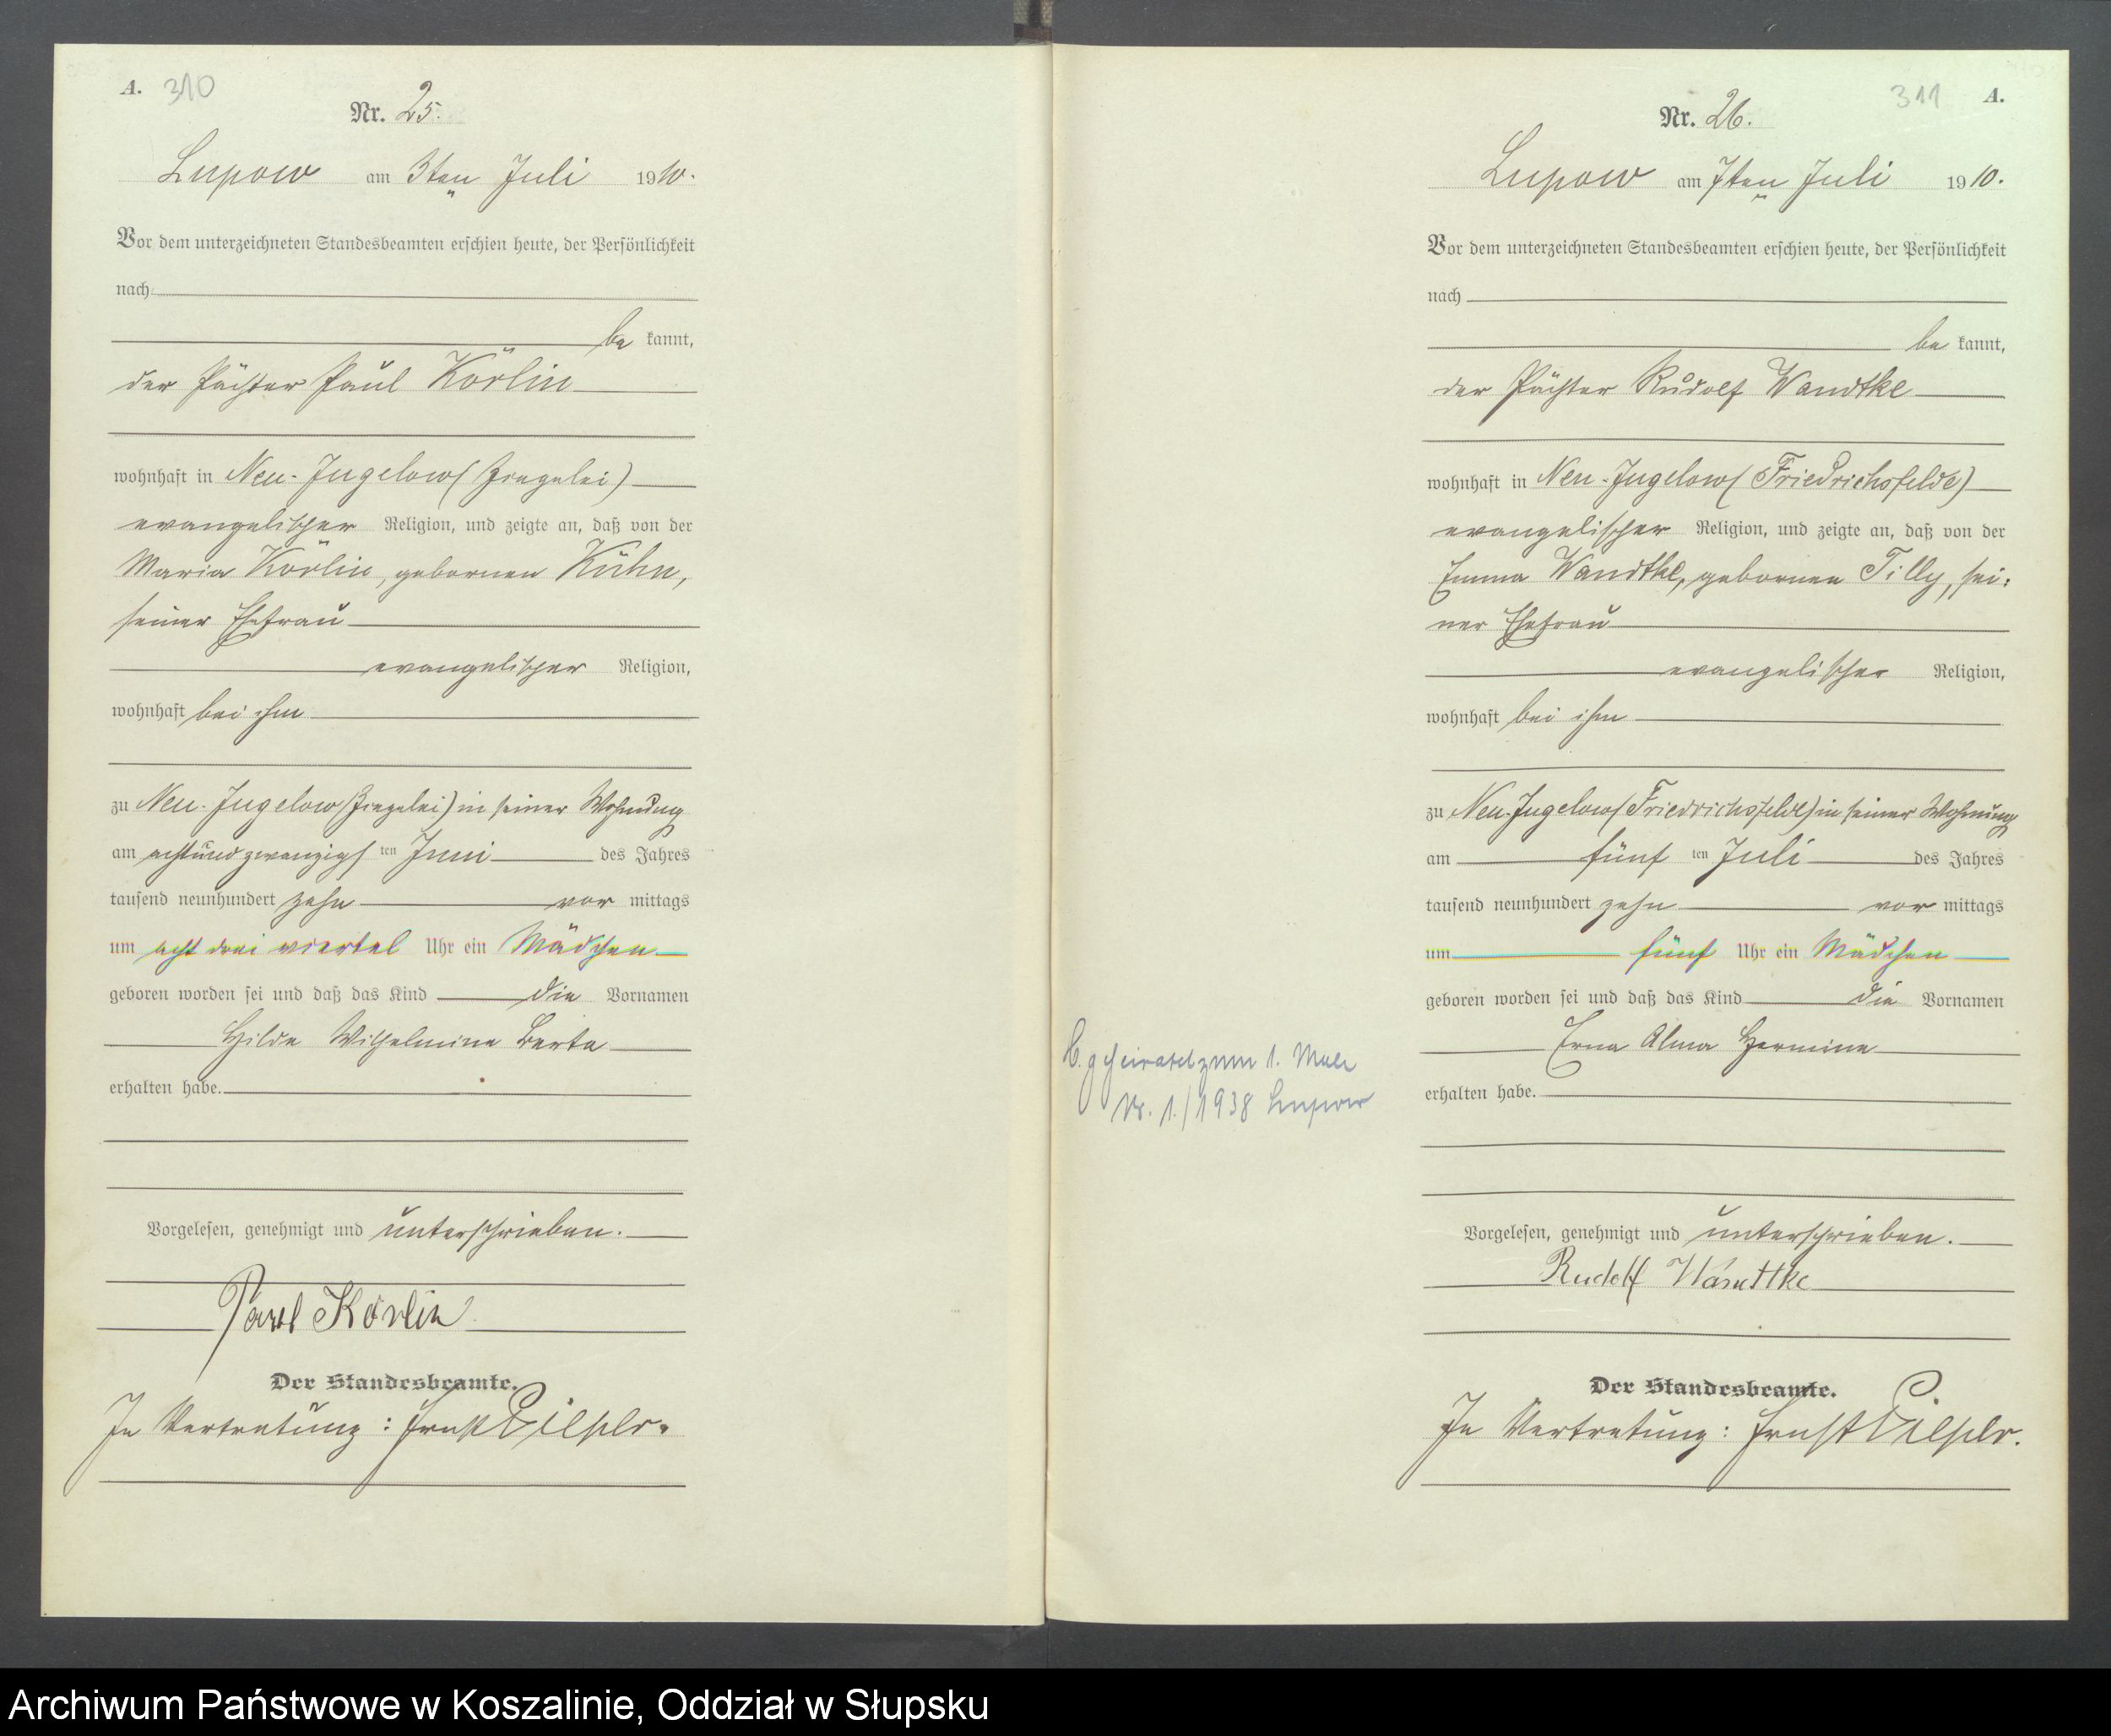 A. 310
Nr. 25.
Lupow am 3ten Juli 1910.
Vor dem unterzeichneten Standesbeamten erschien heute, der Persönlichkeit
nach
be kannt,
der Pächter Paul Körlin
wohnhaft in Neu-Jugelow (Ziegelei)
evangelischer Religion, und zeigte an, daß von der
Maria Körlin, geborenen Kühn,
seiner Ehefrau
evangelischer Religion,
wohnhaft bei ihm
zu Neu-Jugelow (Ziegelei) in seiner Wohnung
am achtundzwanzigs ten Juni des Jahres
tausend neunhundert zehn vor mittags
um acht drei viertel Uhr ein Mädchen
geboren worden sei und daß das Kind die Vornamen
Hilda Wilhelmine Berta
erhalten habe.
Vorgelesen, genehmigt und unterschrieben.
Paul Körlin
Der Standesbeamte.
In Vertretung: Ernst
311 A.
Nr. 26.
Lupow am 7ten Juli 1910.
Vor dem unterzeichneten Standesbeamten erschien heute, der Persönlichkeit
nach
be kannt,
der Pächter Rudolf Wandtke
wohnhaft in Neu-Jugelow (Friedrichsfelde)
evangelischer Religion, und zeigte an, daß von der
Emma Wandtke, geborenen Tilly, sei-
ner Ehefrau
evangelischer Religion,
wohnhaft bei ihm
zu Neu-Jugelow (Friedrichsfelde) in seiner Wohnung
am fünf ten Juli des Jahres
tausend neunhundert zehn vor mittags
um fünf Uhr ein Mädchen
geboren worden sei und daß das Kind die Vornamen
Erna Alma Hermine
erhalten habe.
Vorgelesen, genehmigt und unterschrieben.
Rudolf Wandtke
Der Standesbeamte.
In Vertretung: Ernst
geheiratet zum 1. Male
Nr. 1./1938 Lupow
Archiwum Państwowe w Koszalinie, Oddział w Słupsku